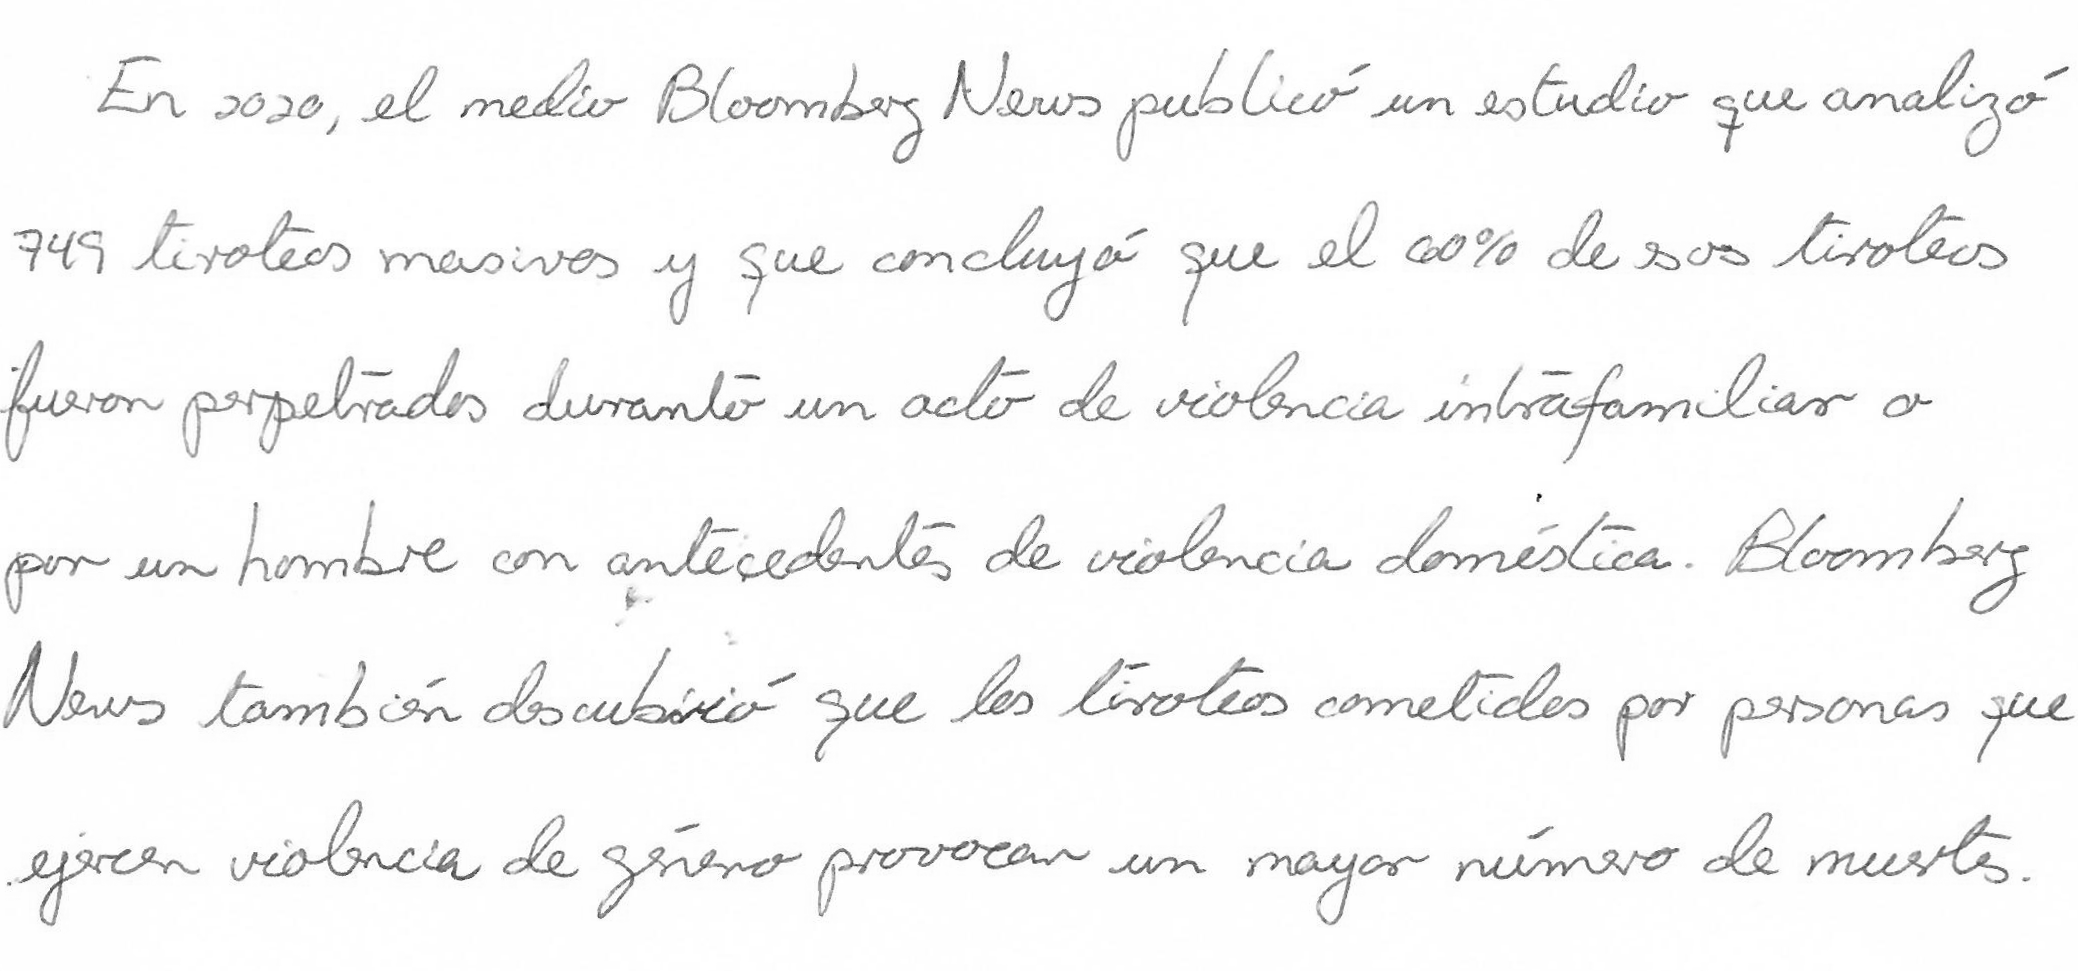 En 2020, el medio Bloomberg News publicó un estudio que analizó
749 tiroteos masivos y que concluyó que el 60% de esos tiroteos
fueron perpetrados durante un acto de violencia intrafamiliar o
por un hombre con antecedentes de violencia doméstica. Bloomberg
News también descubrió que los tiroteos cometidos por personas que
ejercen violencia de género provocan un mayor número de muertes.